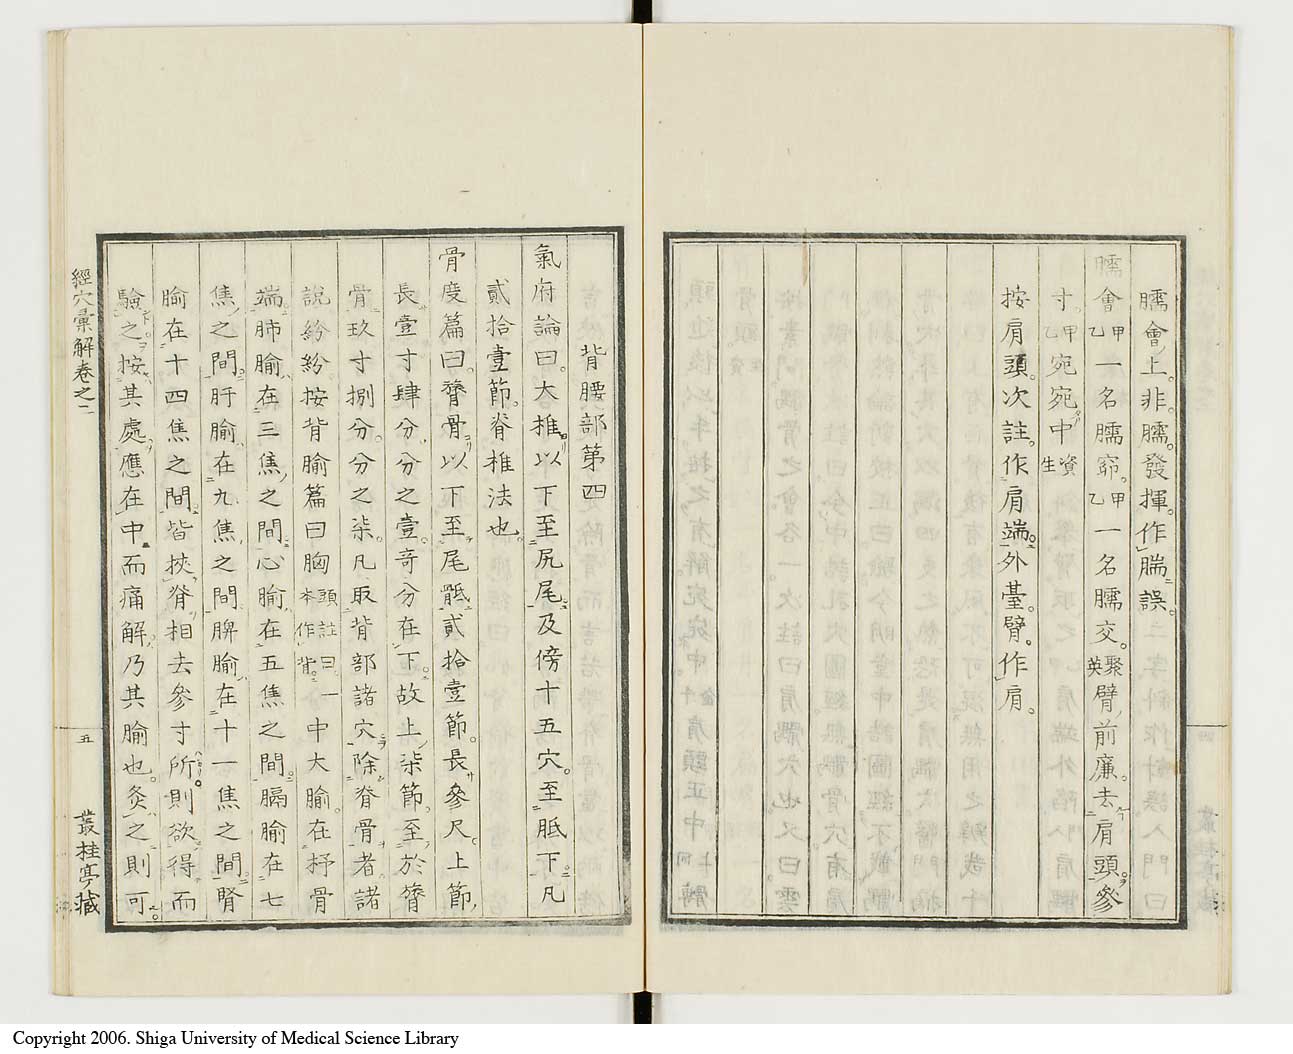 臑會上非臑發揮作腨誤
臑會甲乙一名臑窌甲乙一名臑交聚英臂前廉去肩頭參
寸甲乙宛宛中資生
按肩頭次註作肩端外臺臂作肩
背腰部第四
氣府論曰大椎以下至尻尾及傍十五穴至骶下凡
貳拾壹節脊椎法也
骨度篇曰膂骨以下至尾骶貳拾壹節長參尺上節
長壹寸肆分分之壹奇分在下故上柒節至於膂
骨玖寸捌分分之柒凡取背部諸穴除脊骨者諸
說紛紛按背腧篇曰胸頭註曰一本作背中大腧在杼骨
端肺腧在三焦之間心腧在五焦之間膈腧在七
焦之間肝腧在九焦之間脾腧在十一焦之間腎
腧在十四焦之間皆挾脊相去參寸所則欲得而
驗之按其處應在中而痛解乃其腧也灸之則可
經穴彙解卷之二
五
叢桂亭藏
Copyright 2006. Shiga University of Medical Science Library